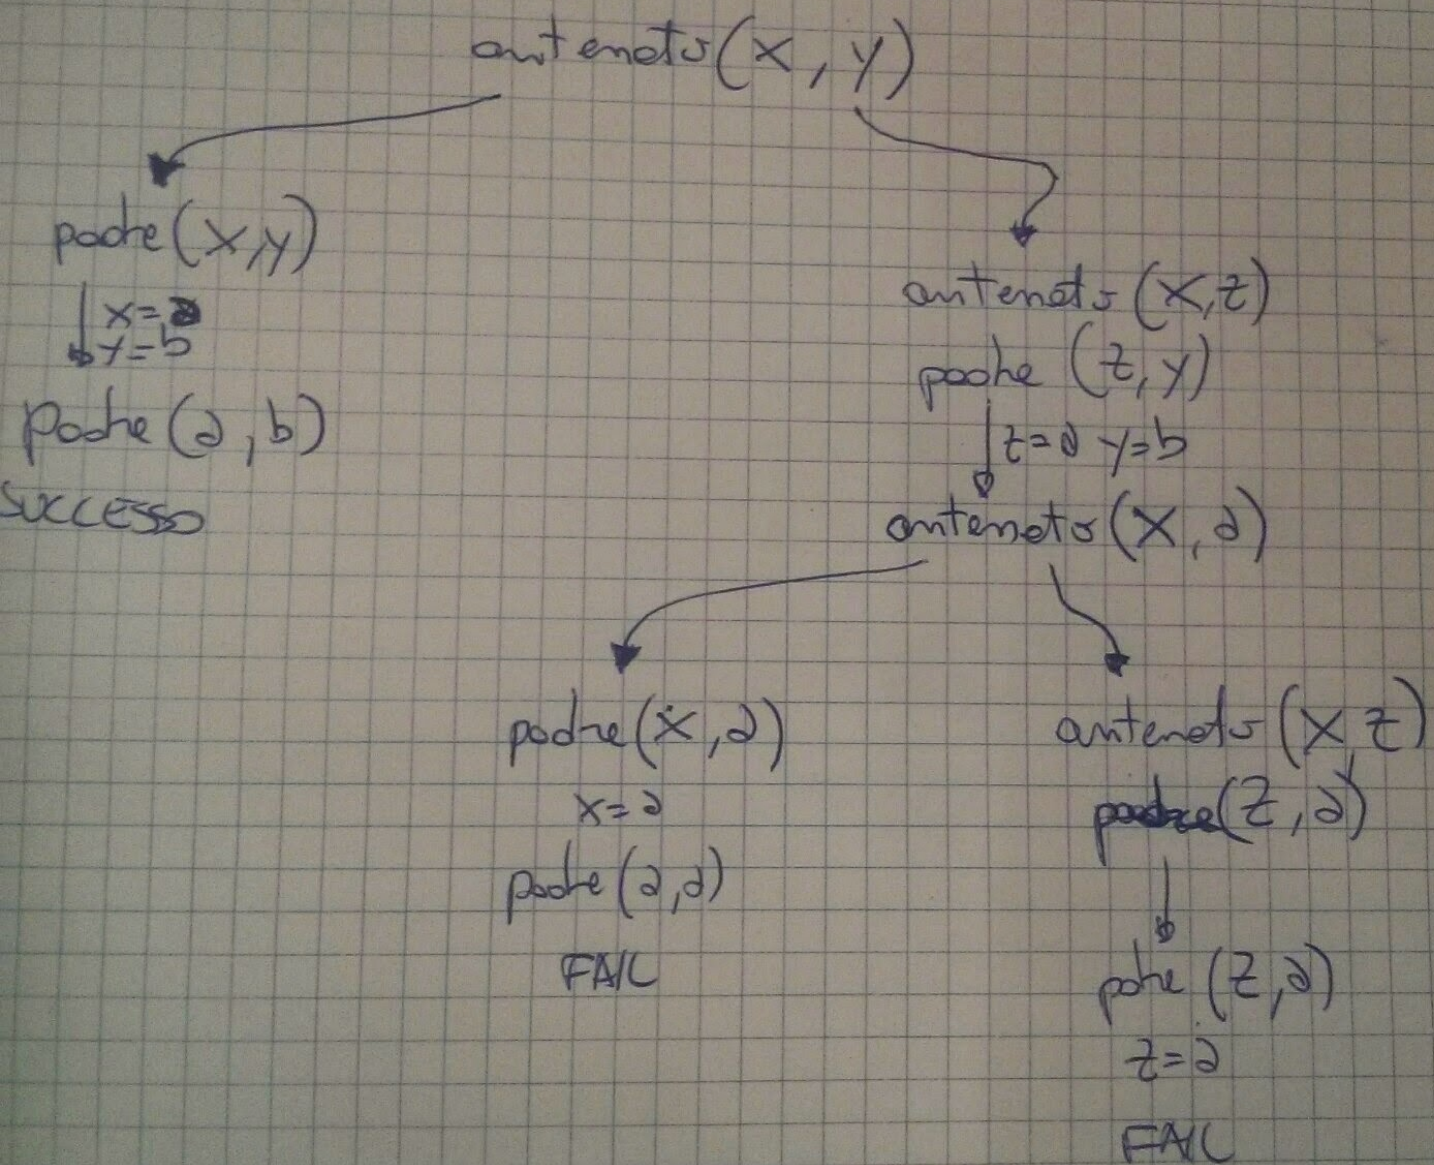 antenato(X, Y)
padre(X,Y)
X=a
Y=b
Padre(a,b)
SUCCESSO
antenato(X,Z)
padre(Z,Y)
Z=a Y=b
antenato(X,a)
padre(X,a)
X=a
padre(a,a)
FAIL
antenato(X,Z)
padre(Z,a)
padre(Z,a)
Z=a
FAIL